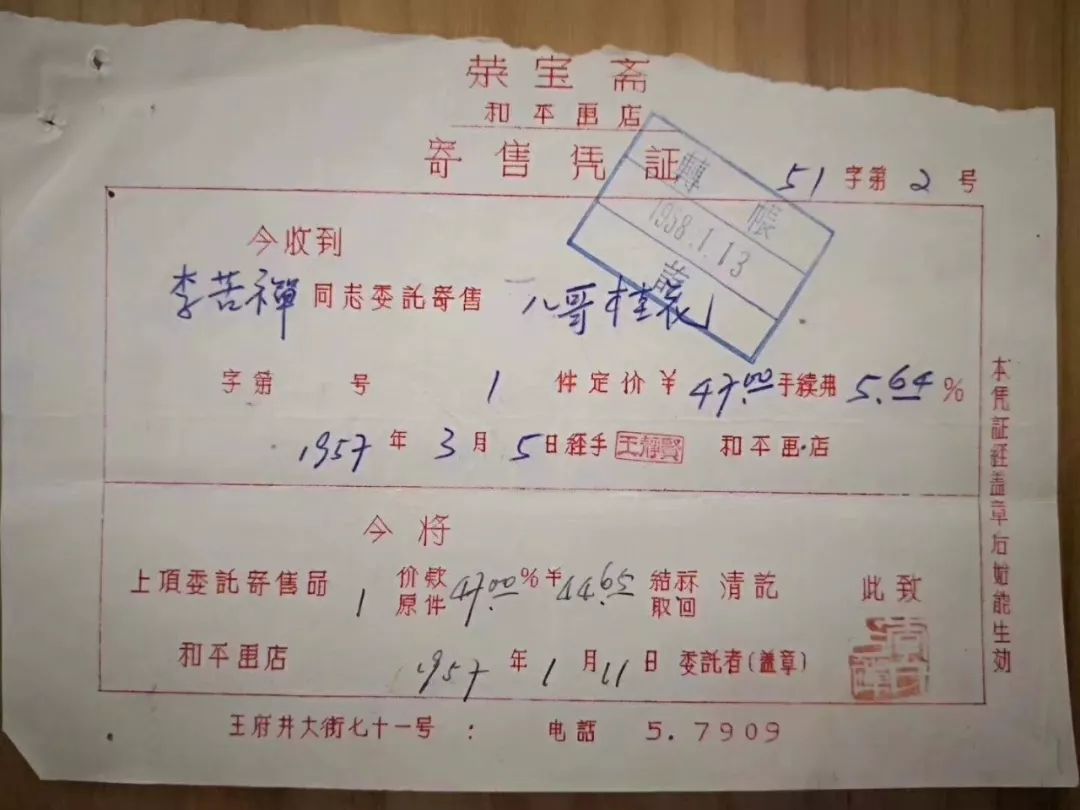 荣宝斋
和平画店
寄售凭証
51字第2号
轉帳
1958.1.13
今收到
李苦禅同志委託寄售 八哥桂花
字第 号 1 件定价¥47.00手续弗5.64%
1957年3月5日経手王靜賢 和平画店
今将
上項委託寄售品1价欵原件47.00%¥44.65結 取回清訖 此致
和平画店 1957年1月11日委託者(盖章)
王府井大街七十一号: 电話 5.7909
本凭証経盖章后始能生効